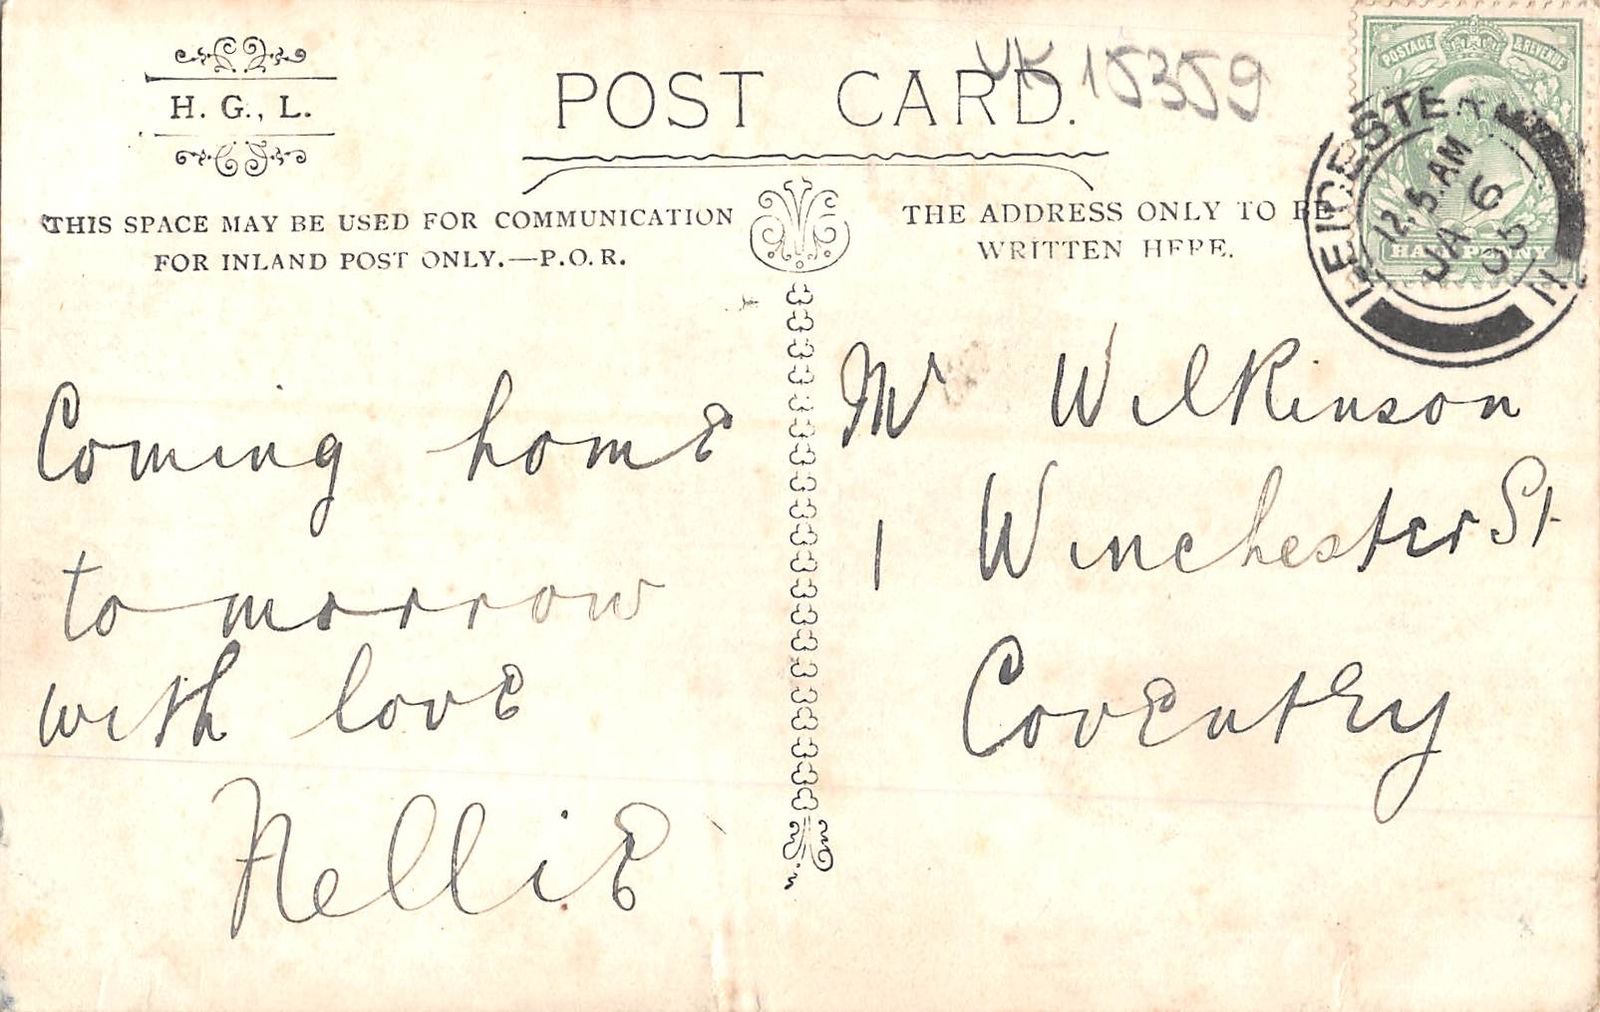 H. G., L.
POST CARD.
UK 15359
THIS SPACE MAY BE USED FOR COMMUNICATION
FOR INLAND POST ONLY.—P.O.R.
THE ADDRESS ONLY TO BE
WRITTEN HERE.
POSTAGE & REVENUE
HALFPENNY
LEICESTER
12.5.AM
JA 6
05
Coming home
to morrow
with love
Nellie
Mr Wilkinson
1 Winchester St
Coventry